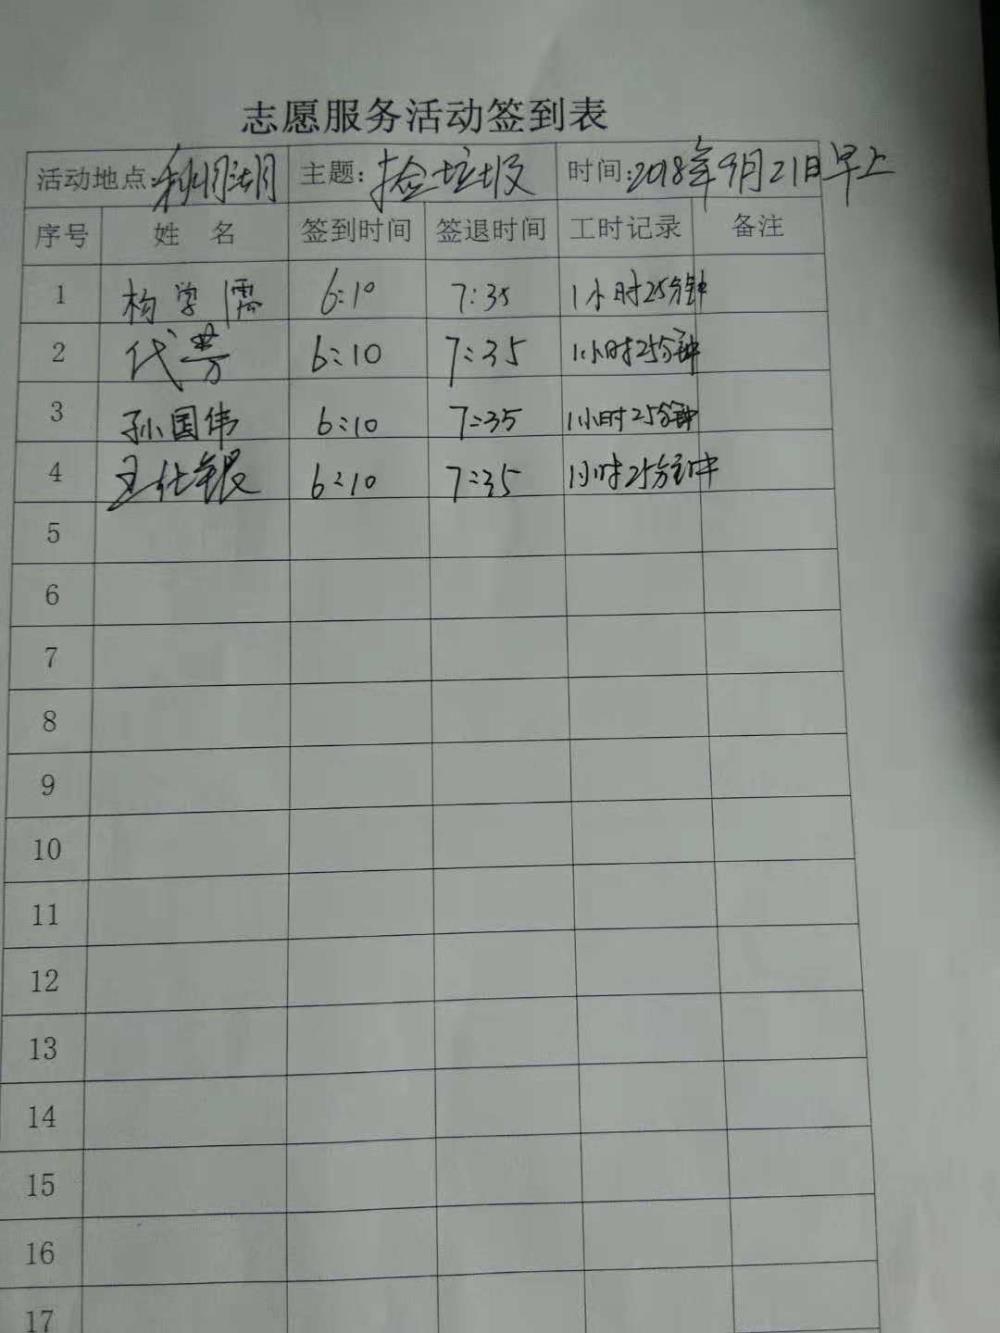 志愿服务活动签到表
活动地点:秋月湖 主题:捡垃圾 时间:2018年9月21日早上
序号 姓 名 签到时间 签退时间 工时记录 备注
1 构学儒 6:10 7:35 1小时25分钟
2 代芳 6:10 7:35 1小时25分钟
3 孙国伟 6:10 7:35 1小时25分钟
4 王仕银 6:10 7:35 1小时25分钟
5
6
7
8
9
10
11
12
13
14
15
16
17